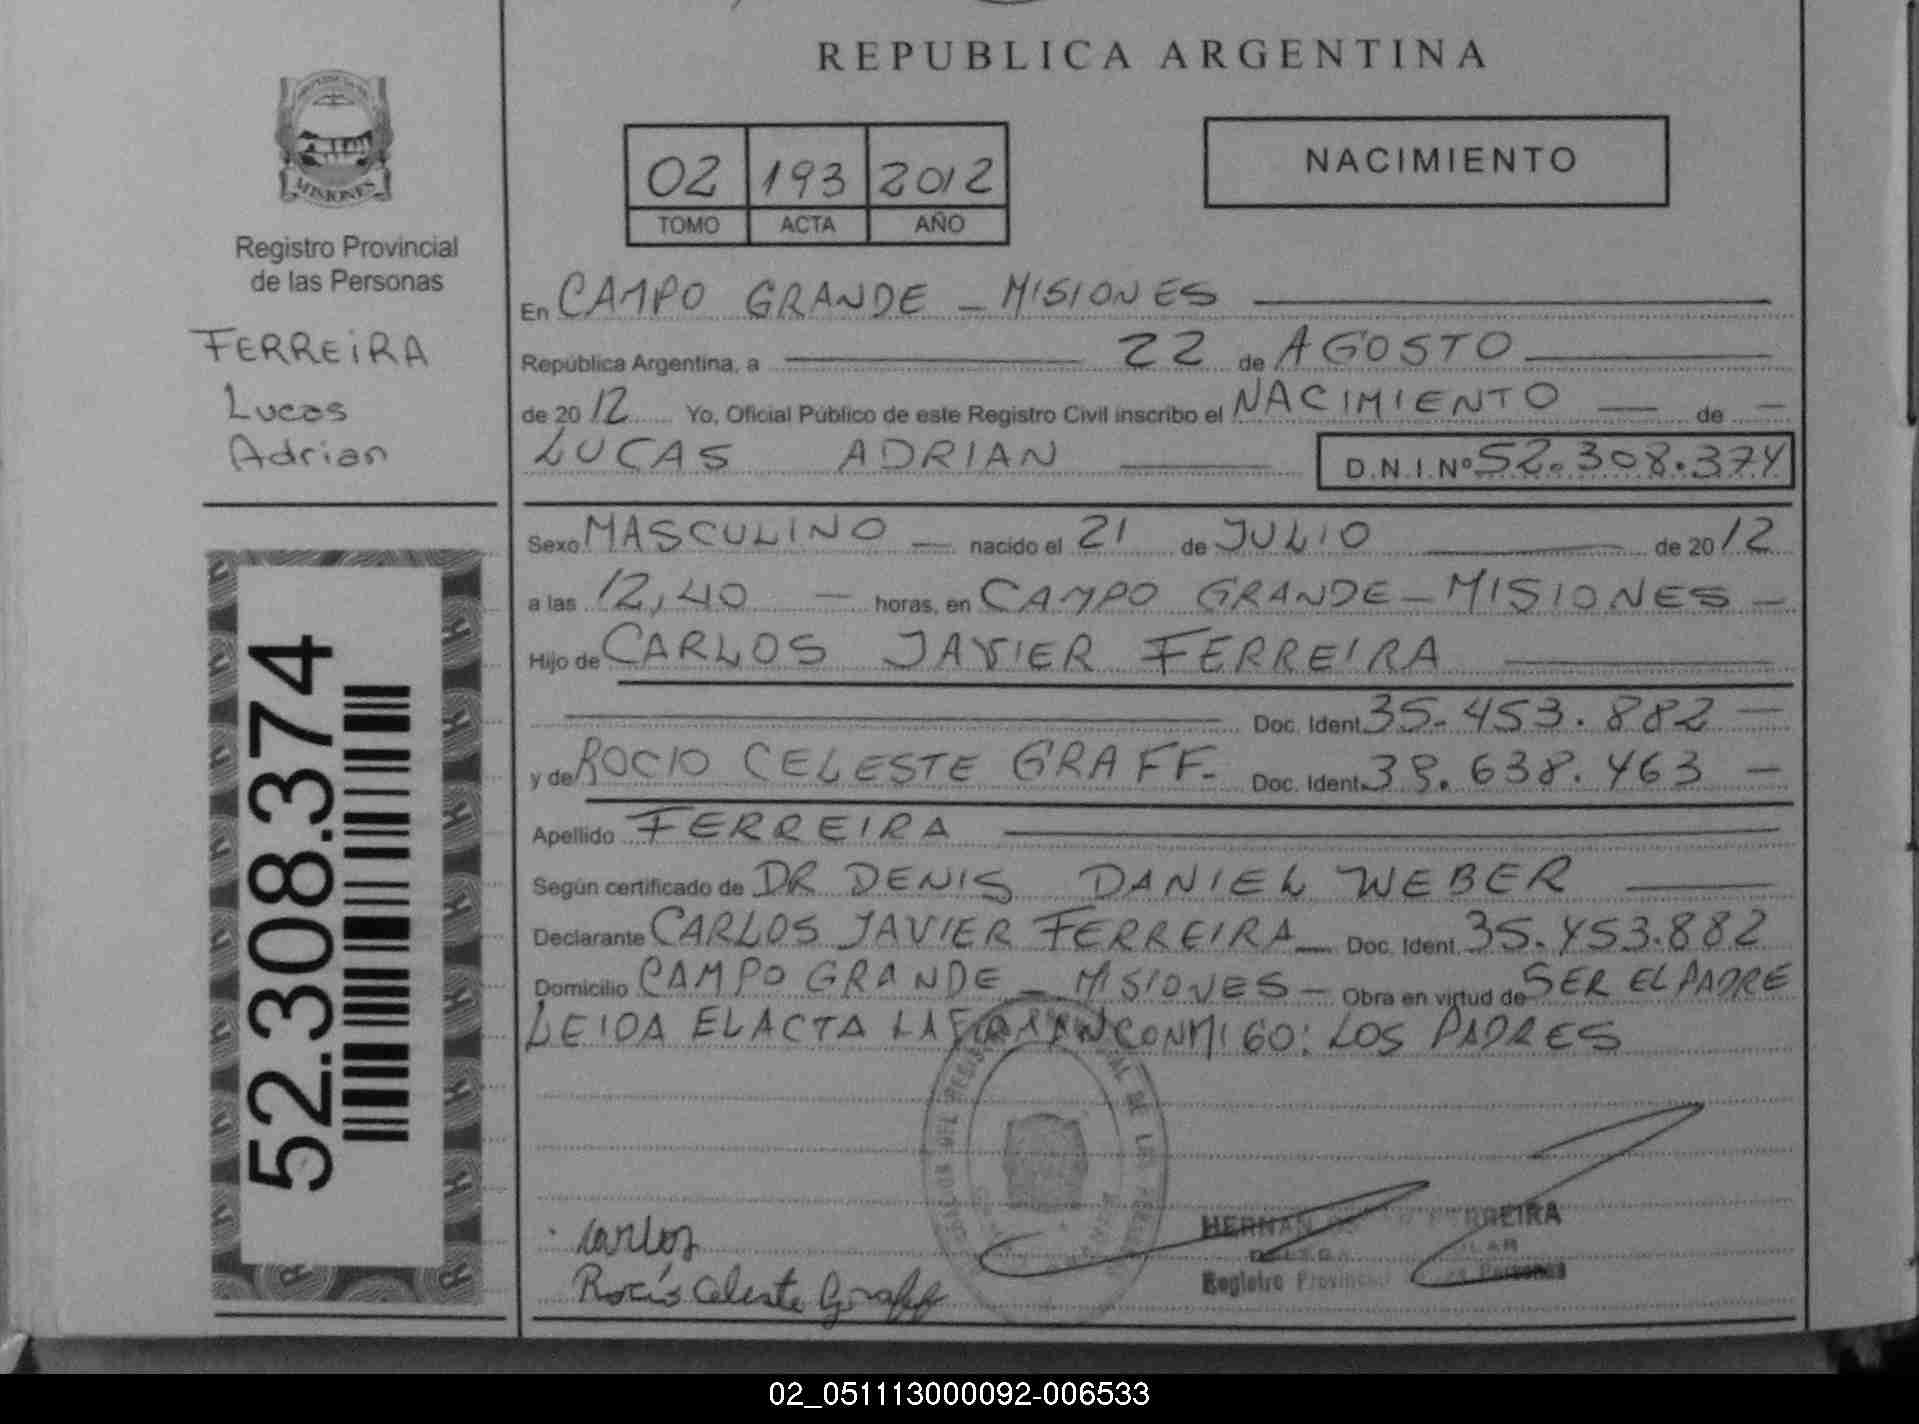 REPUBLICA ARGENTINA
MISIONES
Registro Provincial
de las Personas
FERREIRA
Lucas
Adrian
52.308.374
02 193 2012
TOMO ACTA AÑO
NACIMIENTO
En CAMPO GRANDE - MISIONES
República Argentina, a 22 de AGOSTO
de 2012 Yo, Oficial Público de este Registro Civil inscribo el NACIMIENTO de
LUCAS ADRIAN D.N.I.Nº 52.308.374
Sexo MASCULINO nacido el 21 de JULIO de 2012
a las 12,40 horas, en CAMPO GRANDE - MISIONES
Hijo de CARLOS JAVIER FERREIRA
Doc. Ident. 35.453.882
y de ROCIO CELESTE GRAFF Doc. Ident. 39.638.463
Apellido FERREIRA
Según certificado de DR DENIS DANIEL WEBER
Declarante CARLOS JAVIER FERREIRA Doc. Ident. 35.453.882
Domicilio CAMPO GRANDE - MISIONES - Obra en virtud de SER EL PADRE
LEIDA EL ACTA LA FIRMAN CONMIGO: LOS PADRES
Carlos
Rocío Celeste Graff
HERNAN FERREIRA
Registro Provincial Personas
02_051113000092-006533